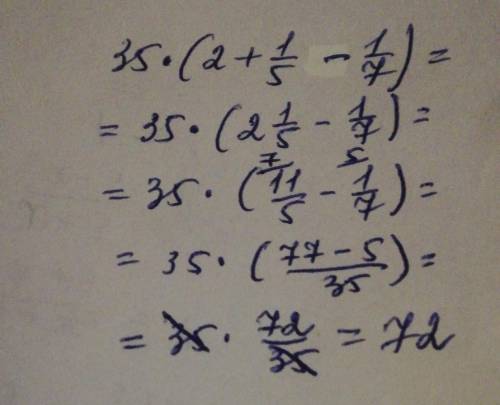 35·(2+1/5 - 1/7)=
=35·(2 1/5 - 1/7)=
=35·(11/5 ⁷ - 1/7 ⁵)=
=35·((77-5)/35)=
=35·72/35=72